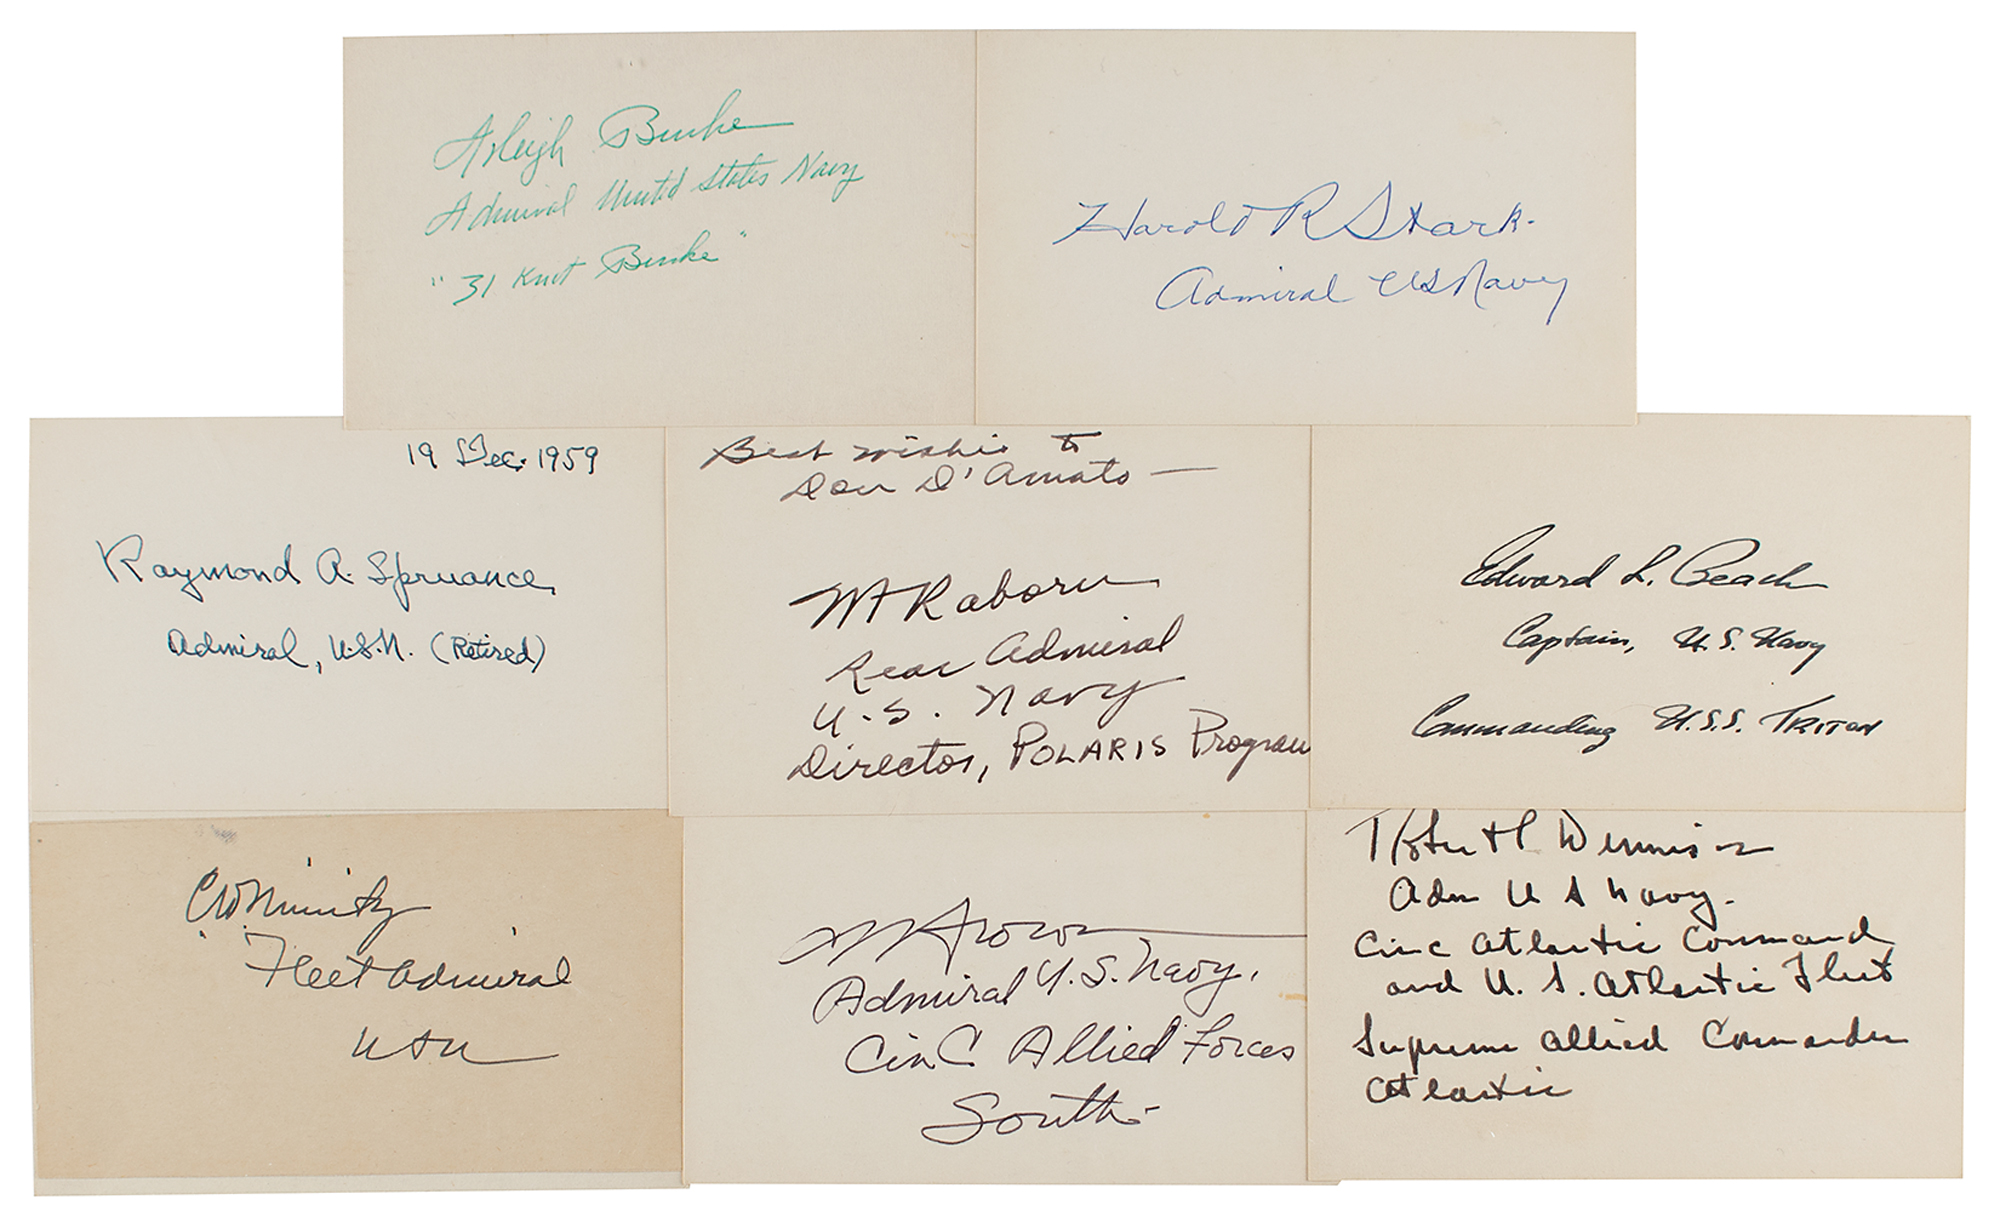 Arleigh Burke
Admiral United States Navy
"31 Knot Burke"
Harold R Stark.
Admiral US Navy
19 Dec. 1959
Raymond A. Spruance
Admiral, U.S.N. (Retired)
Best wishes to
Don D'Amato —
WF Raborn
Rear Admiral
U.S. Navy
Director, POLARIS Program
Edward L. Beach
Captain, U.S. Navy
Commanding U.S.S. TRITON
CW Nimitz
Fleet Admiral
USN
Brown
Admiral U.S. Navy.
CinC Allied Forces
South.
Robert L Dennison
Adm U S Navy.
Cinc Atlantic Command
and U.S. Atlantic Fleet
Supreme Allied Commander
Atlantic